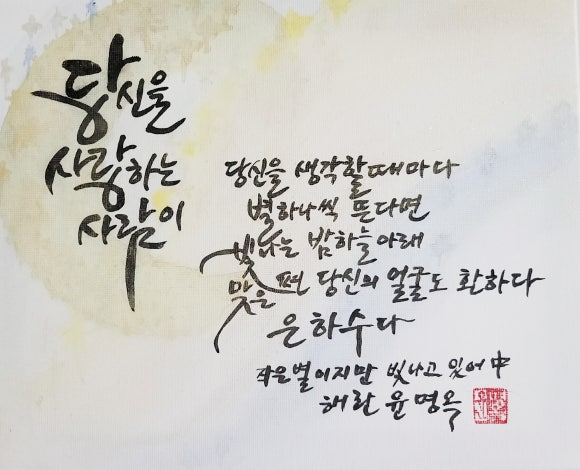 당신을
사랑하는
사람이
당신을 생각할 때마다
별하나씩 뜬다면
빛나는 밤하늘아래
맞은 편 당신의 얼굴도 환하다
은하수다
작은별이지만 빛나고 있어 中
해란 윤명옥